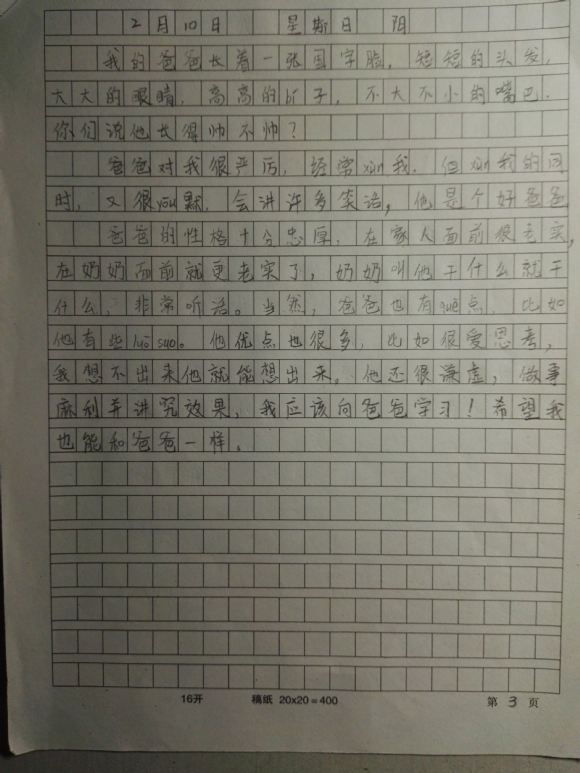 2月10日 星斯日 阴
我的爸爸长着一张国字脸，短短的头发，
大大的眼睛，高高的bí子，不大不小的嘴巴.
你们说他长得帅不帅？
爸爸对我很严厉，经常xùn我.但xùn我的同
时，又很yōu默.会讲许多笑话，他是个好爸爸
爸爸的性格十分忠厚，在家人面前很老实，
在奶奶面前就更老实了，奶奶叫他干什么就干
什么，非常听话。当然，爸爸也有quē点，比如
他有些luō suo。他优点也很多，比如很爱思考，
我想不出来他就能想出来。他还很谦虚，做事
麻利并讲究效果，我应该向爸爸学习！希望我
也能和爸爸一样.
16开 稿纸 20x20=400 第 3 页